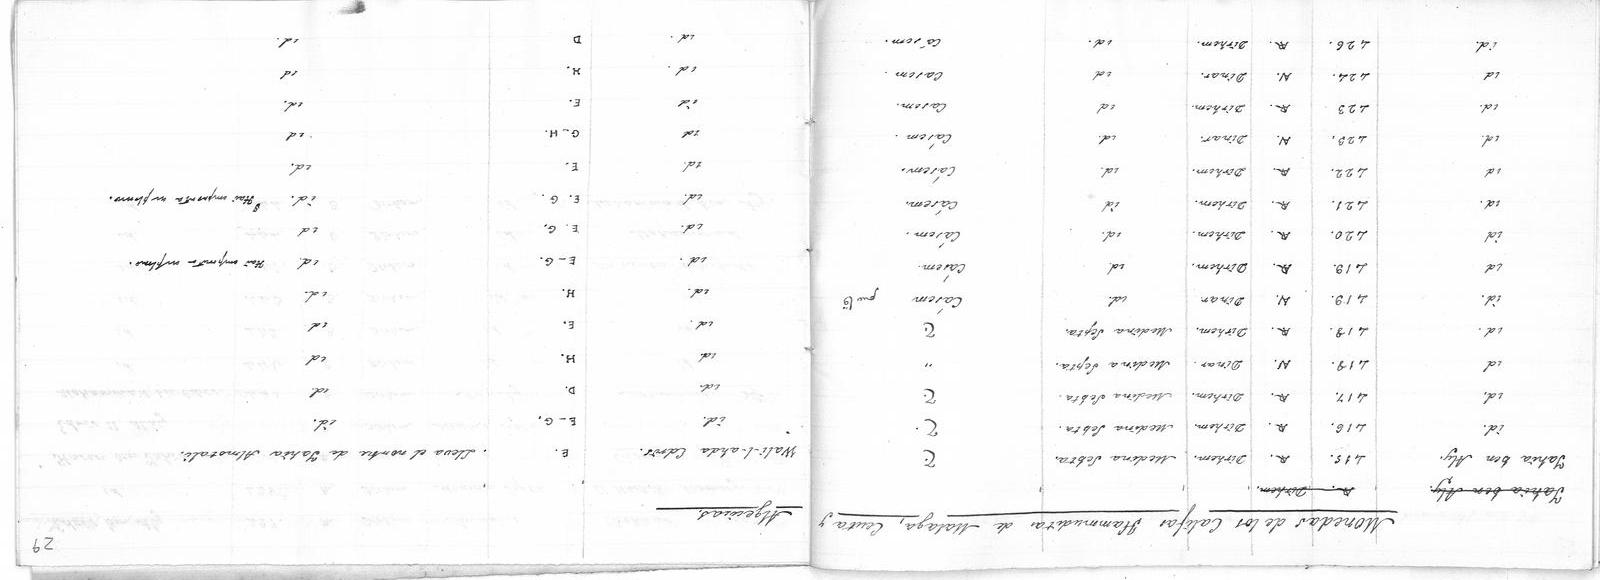 29
Monedas de los Califas Hammuditas de Malaga, Ceuta y Algeciras
Yahia ben Aly. R. Dirhem.
Yahia ben Aly. 415. R. Dirhem. Medina Sebta. ح Wali-l-ahda Edris. E. Lleva el nombre de Yahia Almotali.
id. 416. R. Dirhem. Medina Sebta. ح. id. E-G. id.
id. 417. R. Dirhem. Medina Sebta. ح. id. D. id.
id 418. N. Dinar. Medina Septa. " id H. id
id. 418. R. Dirhem. Medina Septa. ح id. E. id
id. 419. N. Dinar id. Cásem id. H. id.
id 419. R. Dirhem. id Cásem id. E-G. id. Hai
id 420. R. Dirhem. id. Cásem. id. E. G. id
id. 421. R. Dirhem. id Cásem. id. E. G. id. Hai
id 422. R. Dirhem. id. Cásem. id. E id.
id. 423. N. Dinar. id Cásem. id G-H. id
id. 423 R. Dirhem. id Casem. id E. id.
id 424. N. Dinar. id Casem. id. H. id
id. 426. R. Dirhem. id. Cásem. id. D id.